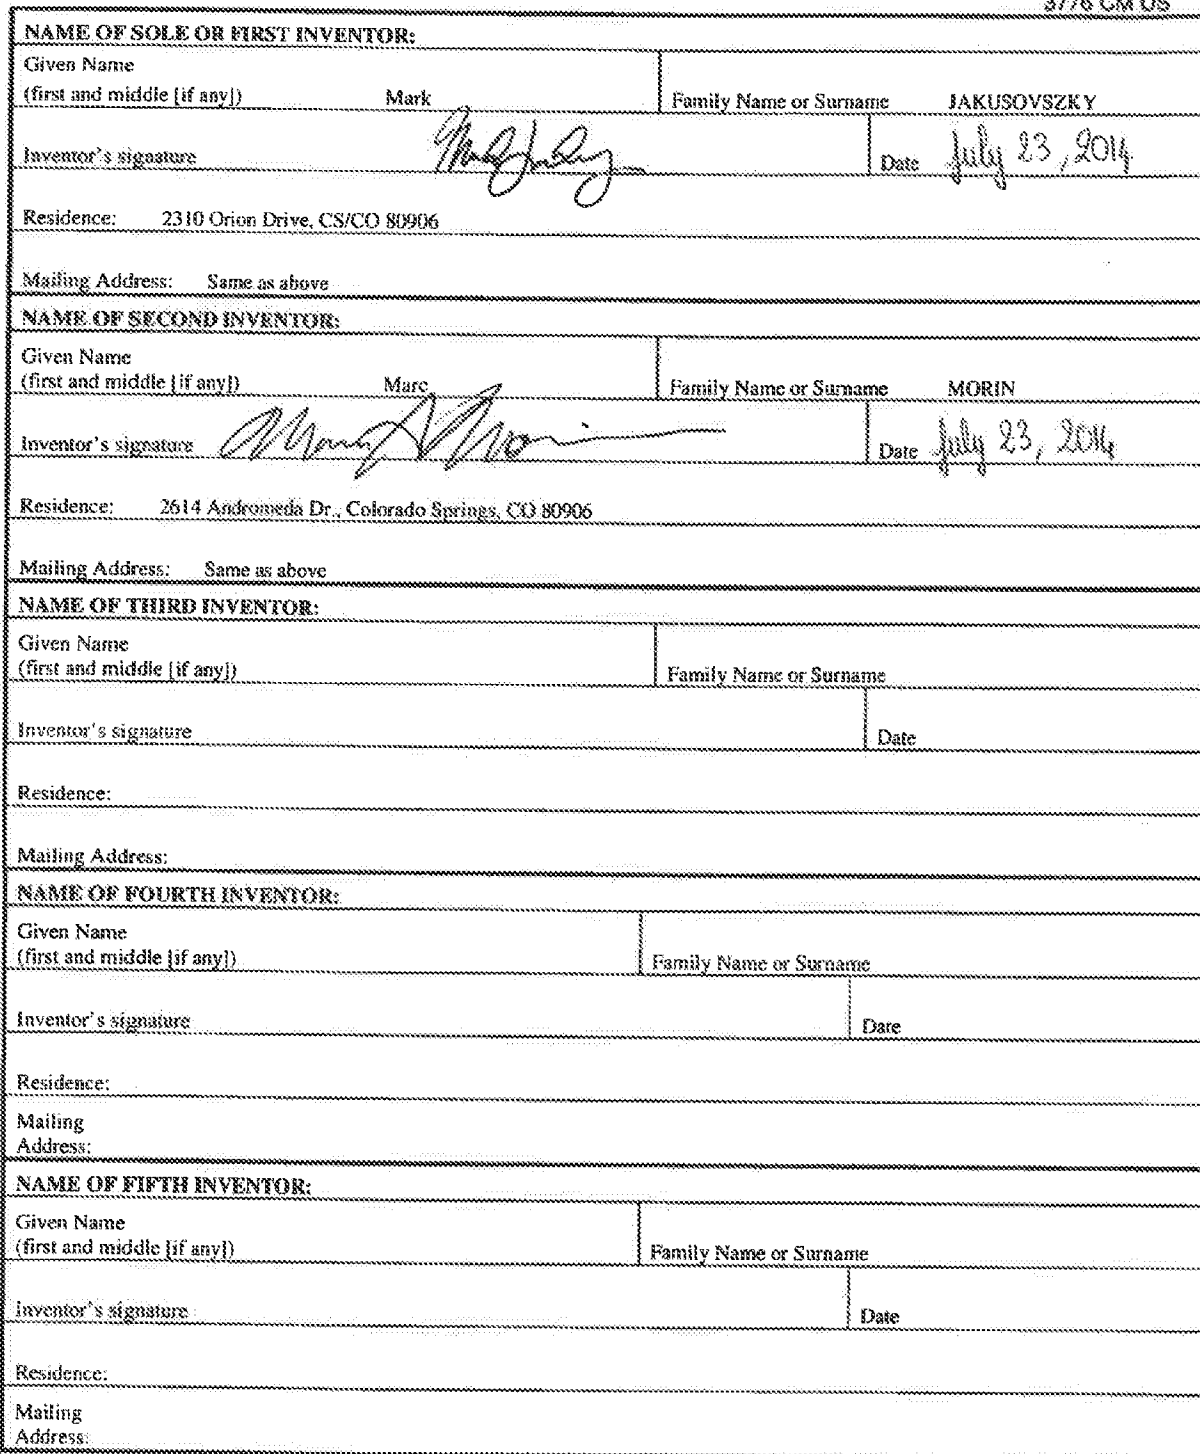 3776 CM US
NAME OF SOLE OR FIRST INVENTOR:
Given Name
(first and middle [if any]) Mark Family Name or Surname JAKUSOVSZKY
Inventor's signature Date July 23, 2014
Residence: 2310 Orion Drive, CS/CO 80906
Mailing Address: Same as above
NAME OF SECOND INVENTOR:
Given Name
(first and middle [if any]) Marc Family Name or Surname MORIN
Inventor's signature Date July 23, 2014
Residence: 2614 Andromeda Dr., Colorado Springs, CO 80906
Mailing Address: Same as above
NAME OF THIRD INVENTOR:
Given Name
(first and middle [if any]) Family Name or Surname
Inventor's signature Date
Residence:
Mailing Address:
NAME OF FOURTH INVENTOR:
Given Name
(first and middle [if any]) Family Name or Surname
Inventor's signature Date
Residence:
Mailing
Address:
NAME OF FIFTH INVENTOR:
Given Name
(first and middle [if any]) Family Name or Surname
Inventor's signature Date
Residence:
Mailing
Address: